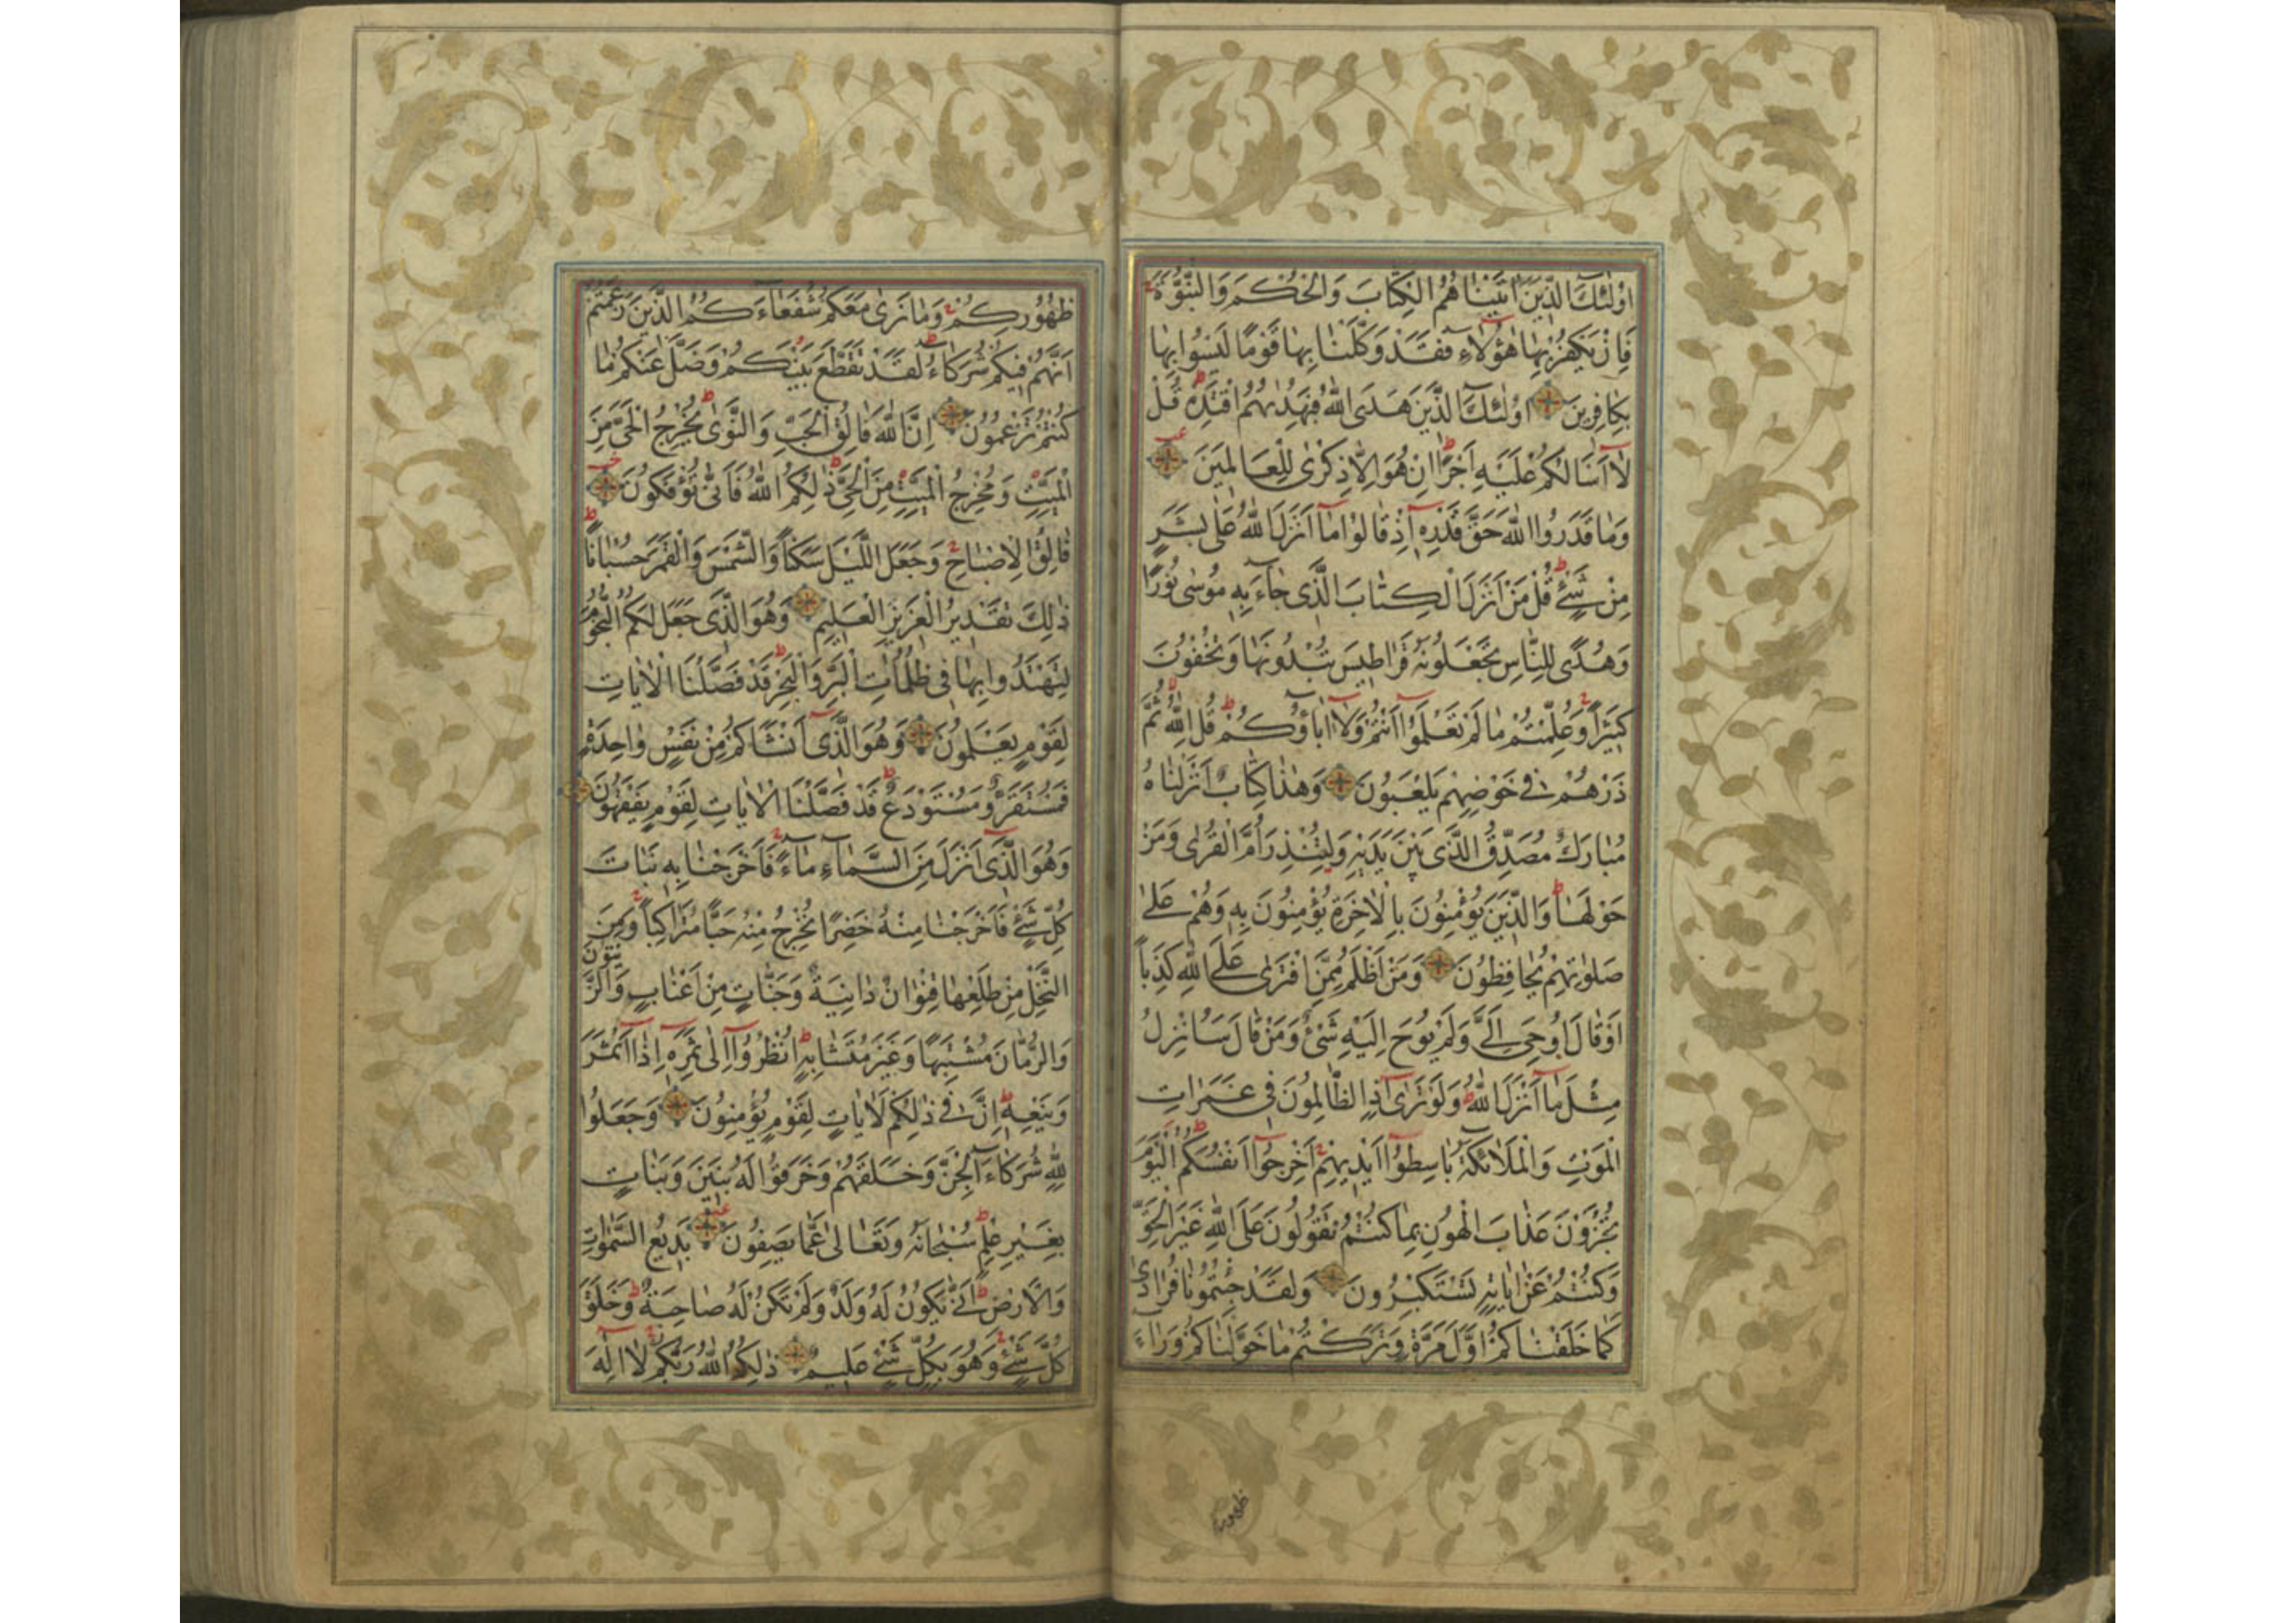 اُولٰئِكَ الَّذينَ اٰتَيْنَاهُمُ الْكِتَابَ وَالْحُكْمَ وَالنُّبُوَّةَ
فَاِنْ يَكْفُرْ بِهَا هٰؤُلَاءِ فَقَدْ وَكَّلْنَا بِهَا قَوْمًا لَيْسُوا بِهَا
بِكَافِرينَ اُولٰئِكَ الَّذينَ هَدَى اللّٰهُ فَبِهُدٰيهُمُ اقْتَدِهْ قُلْ
لَا اَسْاَلُكُمْ عَلَيْهِ اَجْرًا اِنْ هُوَ اِلَّا ذِكْرٰى لِلْعَالَمينَ
وَمَا قَدَرُوا اللّٰهَ حَقَّ قَدْرِهِ اِذْ قَالُوا مَا اَنْزَلَ اللّٰهُ عَلٰى بَشَرٍ
مِنْ شَيْءٍ قُلْ مَنْ اَنْزَلَ الْكِتَابَ الَّذى جَاءَ بِهِ مُوسٰى نُورًا
وَهُدًى لِلنَّاسِ تَجْعَلُونَهُ قَرَاطيسَ تُبْدُونَهَا وَتُخْفُونَ
كَثيرًا وَعُلِّمْتُمْ مَا لَمْ تَعْلَمُوا اَنْتُمْ وَلَا اٰبَاؤُكُمْ قُلِ اللّٰهُ ثُمَّ
ذَرْهُمْ فى خَوْضِهِمْ يَلْعَبُونَ وَهٰذَا كِتَابٌ اَنْزَلْنَاهُ
مُبَارَكٌ مُصَدِّقُ الَّذى بَيْنَ يَدَيْهِ وَلِتُنْذِرَ اُمَّ الْقُرٰى وَمَنْ
حَوْلَهَا وَالَّذينَ يُؤْمِنُونَ بِالْاٰخِرَةِ يُؤْمِنُونَ بِهِ وَهُمْ عَلٰى
صَلٰوتِهِمْ يُحَافِظُونَ وَمَنْ اَظْلَمُ مِمَّنِ افْتَرٰى عَلَى اللّٰهِ كَذِبًا
اَوْ قَالَ اُوحِىَ اِلَىَّ وَلَمْ يُوحَ اِلَيْهِ شَيْءٌ وَمَنْ قَالَ سَاُنْزِلُ
مِثْلَ مَا اَنْزَلَ اللّٰهُ وَلَوْ تَرٰى اِذِ الظَّالِمُونَ فى غَمَرَاتِ
الْمَوْتِ وَالْمَلٰائِكَةُ بَاسِطُوا اَيْديهِمْ اَخْرِجُوا اَنْفُسَكُمُ الْيَوْمَ
تُجْزَوْنَ عَذَابَ الْهُونِ بِمَا كُنْتُمْ تَقُولُونَ عَلَى اللّٰهِ غَيْرَ الْحَقِّ
وَكُنْتُمْ عَنْ اٰيَاتِهِ تَسْتَكْبِرُونَ وَلَقَدْ جِئْتُمُونَا فُرَادٰى
كَمَا خَلَقْنَاكُمْ اَوَّلَ مَرَّةٍ وَتَرَكْتُمْ مَا خَوَّلْنَاكُمْ وَرَاءَ
ظهوركم
ظُهُورِكُمْ وَمَا نَرٰى مَعَكُمْ شُفَعَاءَكُمُ الَّذينَ زَعَمْتُمْ
اَنَّهُمْ فيكُمْ شُرَكَاءُ لَقَدْ تَقَطَّعَ بَيْنَكُمْ وَضَلَّ عَنْكُمْ مَا
كُنْتُمْ تَزْعُمُونَ اِنَّ اللّٰهَ فَالِقُ الْحَبِّ وَالنَّوٰى يُخْرِجُ الْحَىَّ مِنَ
الْمَيِّتِ وَمُخْرِجُ الْمَيِّتِ مِنَ الْحَىِّ ذٰلِكُمُ اللّٰهُ فَاَنّٰى تُؤْفَكُونَ
فَالِقُ الْاِصْبَاحِ وَجَعَلَ اللَّيْلَ سَكَنًا وَالشَّمْسَ وَالْقَمَرَ حُسْبَانًا
ذٰلِكَ تَقْديرُ الْعَزيزِ الْعَليمِ وَهُوَ الَّذى جَعَلَ لَكُمُ النُّجُومَ
لِتَهْتَدُوا بِهَا فى ظُلُمَاتِ الْبَرِّ وَالْبَحْرِ قَدْ فَصَّلْنَا الْاٰيَاتِ
لِقَوْمٍ يَعْلَمُونَ وَهُوَ الَّذى اَنْشَاَكُمْ مِنْ نَفْسٍ وَاحِدَةٍ
فَمُسْتَقَرٌّ وَمُسْتَوْدَعٌ قَدْ فَصَّلْنَا الْاٰيَاتِ لِقَوْمٍ يَفْقَهُونَ
وَهُوَ الَّذى اَنْزَلَ مِنَ السَّمَاءِ مَاءً فَاَخْرَجْنَا بِهِ نَبَاتَ
كُلِّ شَيْءٍ فَاَخْرَجْنَا مِنْهُ خَضِرًا نُخْرِجُ مِنْهُ حَبًّا مُتَرَاكِبًا وَمِنَ
النَّخْلِ مِنْ طَلْعِهَا قِنْوَانٌ دَانِيَةٌ وَجَنَّاتٍ مِنْ اَعْنَابٍ وَالزَّيْتُونَ
وَالرُّمَّانَ مُشْتَبِهًا وَغَيْرَ مُتَشَابِهٍ اُنْظُرُوا اِلٰى ثَمَرِهِ اِذَا اَثْمَرَ
وَيَنْعِهِ اِنَّ فى ذٰلِكُمْ لَاٰيَاتٍ لِقَوْمٍ يُؤْمِنُونَ وَجَعَلُوا
لِلّٰهِ شُرَكَاءَ الْجِنَّ وَخَلَقَهُمْ وَخَرَقُوا لَهُ بَنينَ وَبَنَاتٍ
بِغَيْرِ عِلْمٍ سُبْحَانَهُ وَتَعَالٰى عَمَّا يَصِفُونَ بَديعُ السَّمٰوَاتِ
وَالْاَرْضِ اَنّٰى يَكُونُ لَهُ وَلَدٌ وَلَمْ تَكُنْ لَهُ صَاحِبَةٌ وَخَلَقَ
كُلَّ شَيْءٍ وَهُوَ بِكُلِّ شَيْءٍ عَليمٌ ذٰلِكُمُ اللّٰهُ رَبُّكُمْ لَا اِلٰهَ